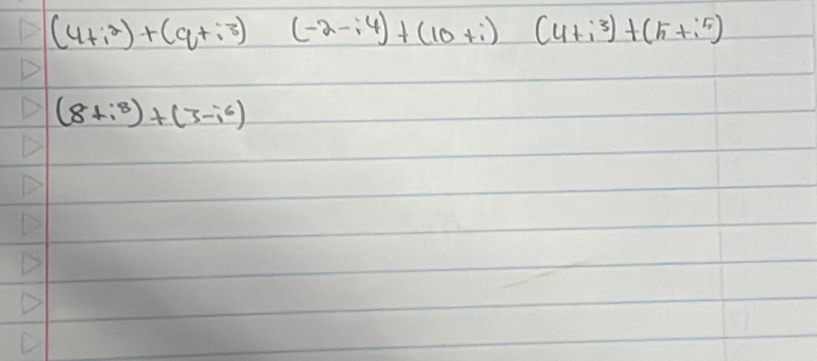 (4+i²)+(9+i³) (-2-i4)+(10+i) (4+i³)+(5+i⁵)
(8+i⁸)+(3-i⁶)